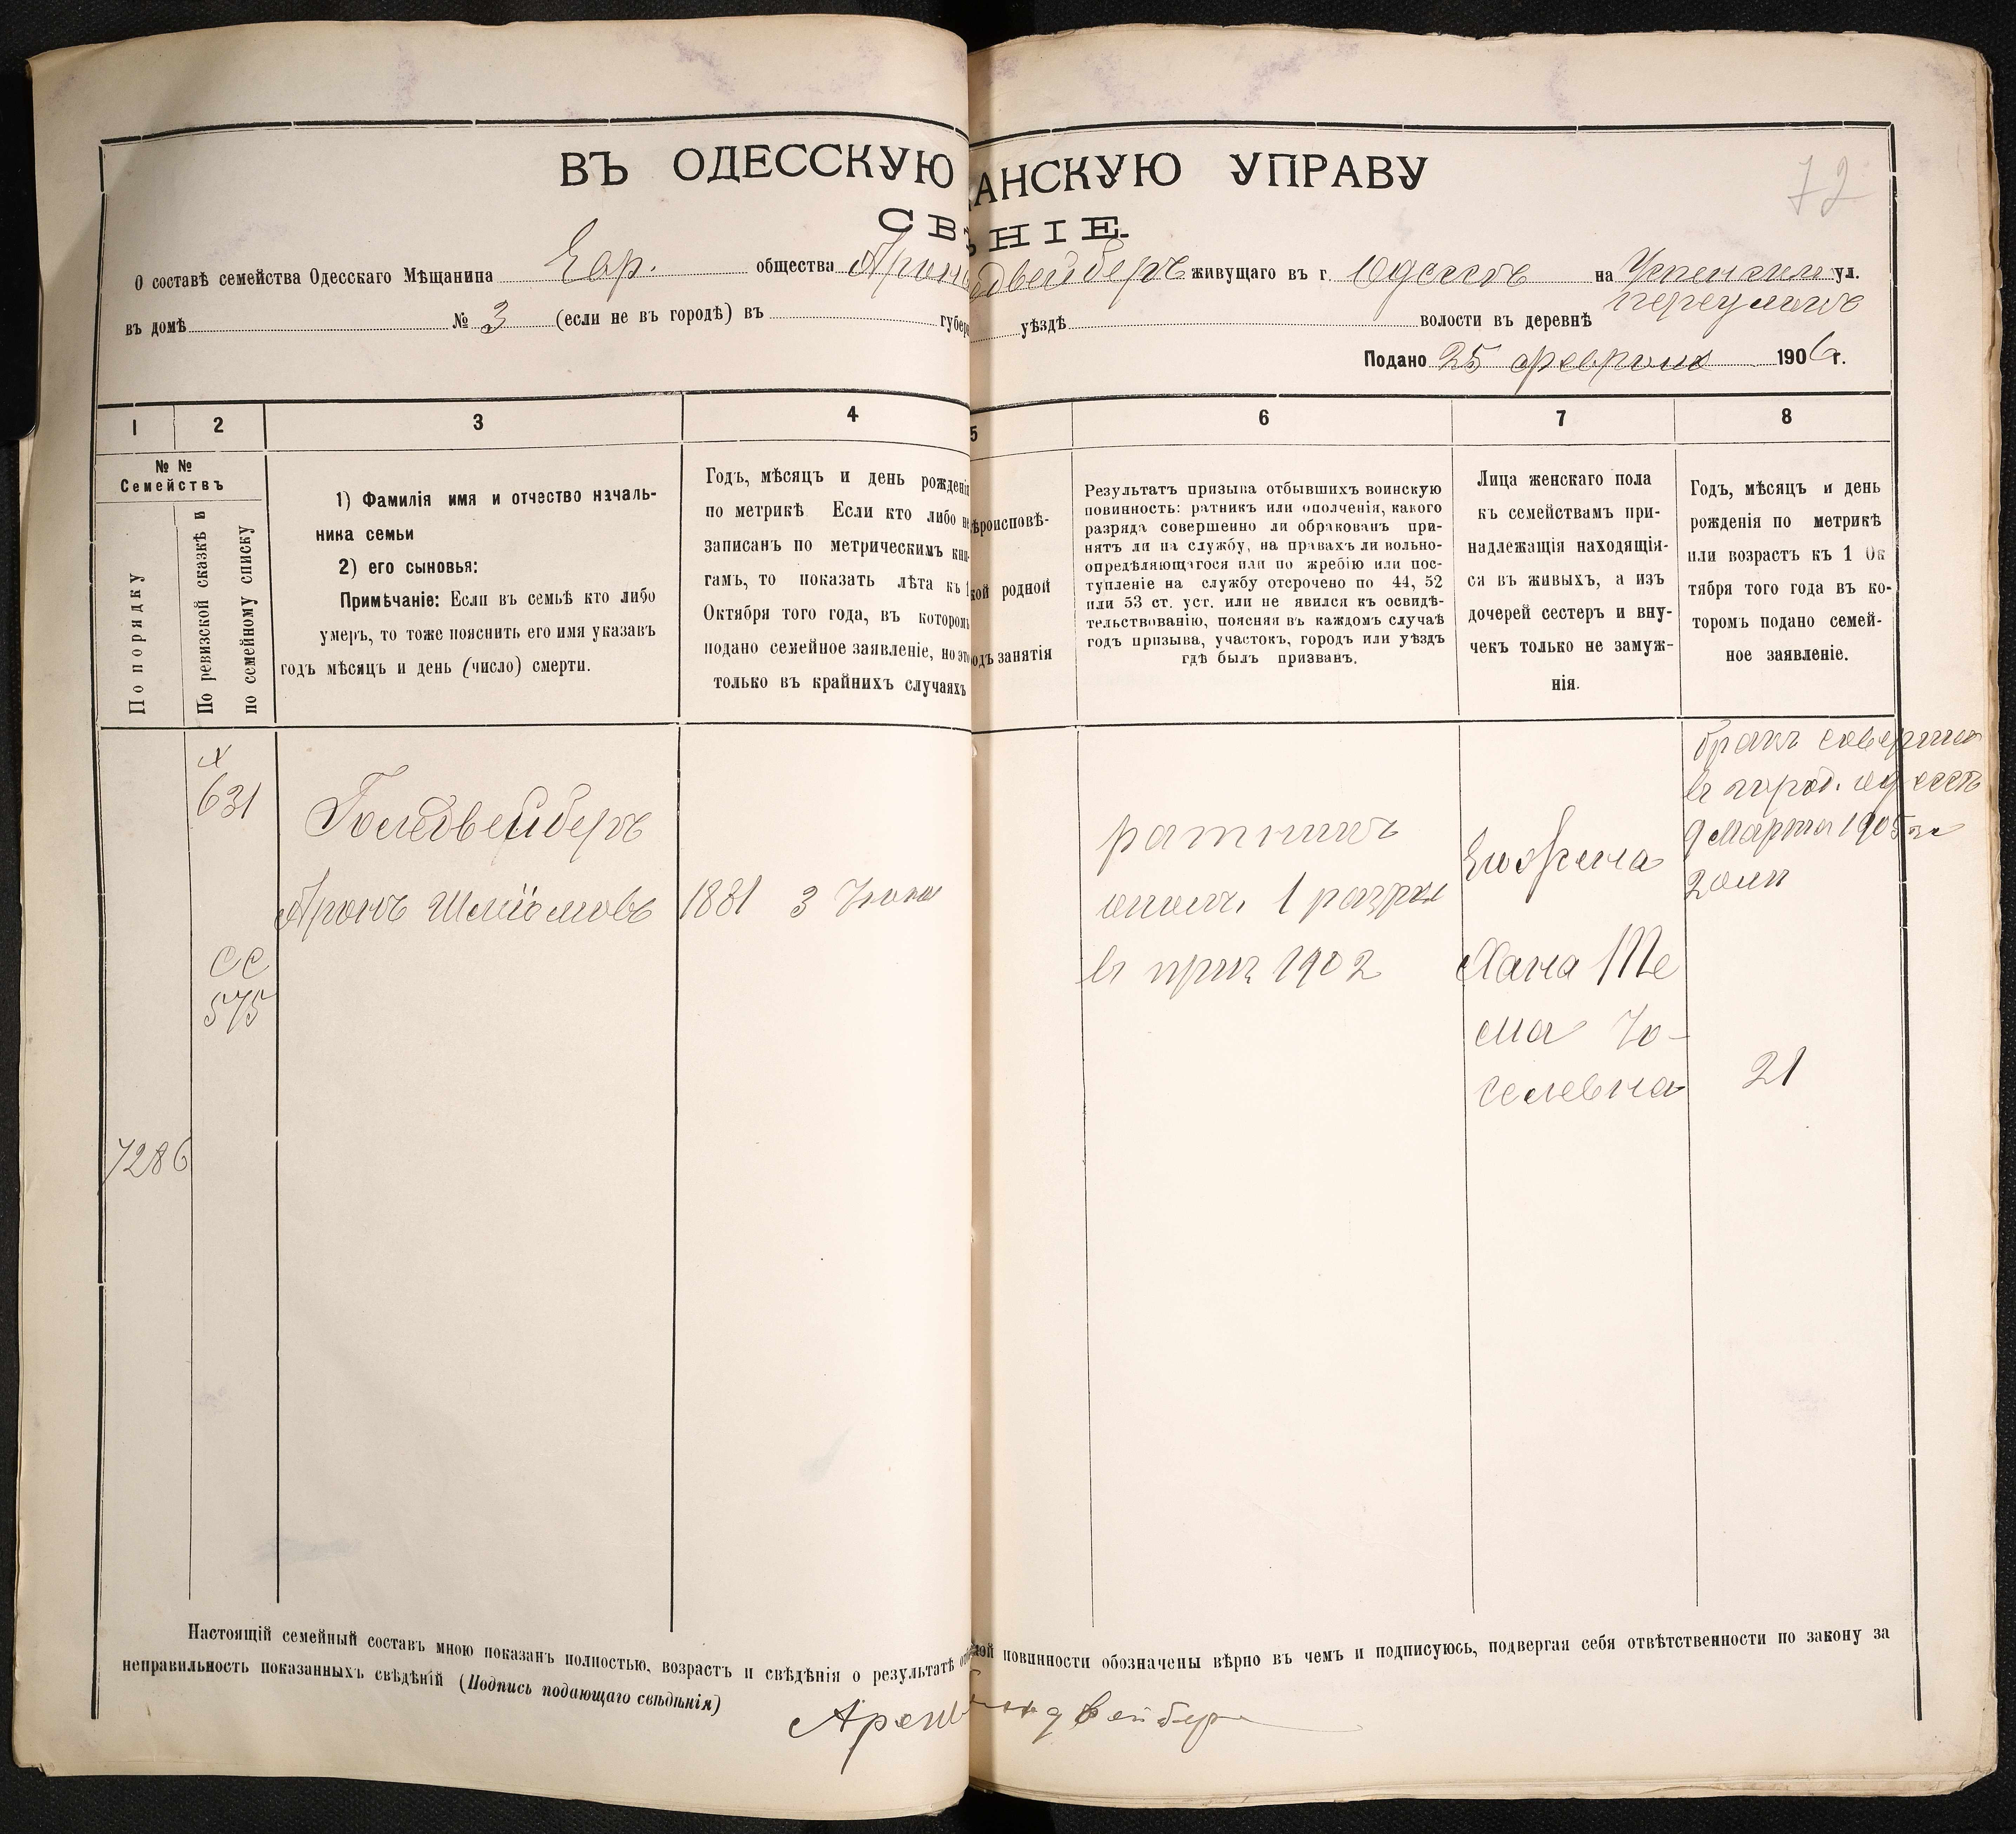 ВЪ ОДЕССКУЮ АНСКУЮ УПРАВУ
72
СВѢНІЕ.
О составѣ семейства Одесскаго Мѣщанина Евр. общества Аронъ двейберъ живущаго въ г. Одессѣ на Успенскомъ ул.
переулкѣ
въ домѣ № 3 (если не въ городѣ) въ губер уѣздѣ волости въ деревнѣ
Подано 25 февраля 1906 г.
1 2 3 4 5 6 7 8
№ № Семействъ
По порядку
По ревизской сказкѣ и
по семейному списку
1) Фамилія имя и отчество началь-
ника семьи
2) его сыновья:
Примѣчаніе: Если въ семьѣ кто либо
умеръ, то тоже пояснить его имя указавъ
годъ мѣсяцъ и день (число) смерти.
Годъ, мѣсяцъ и день рожденія
по метрикѣ Если кто либо не
записанъ по метрическимъ кни-
гамъ, то показать лѣта къ 1
Октября того года, въ которомъ
подано семейное заявленіе, но это
только въ крайнихъ случаяхъ
ѣроисповѣ-
кой родной
одъ занятія
Результатъ призыва отбывшихъ воинскую
повинность: ратникъ или ополченія, какого
разряда совершенно ли обракованъ при-
нятъ ли на службу, на правахъ ли вольно-
опредѣляющагося или по жребію или пос-
тупленіе на службу отсрочено по 44, 52
или 53 ст. уст. или не явился къ освидѣ-
тельствованію, поясняя въ каждомъ случаѣ
годъ призыва, участокъ, городъ или уѣздъ
гдѣ былъ призванъ.
Лица женскаго пола
къ семействамъ при-
надлежащія находящія-
ся въ живыхъ, а изъ
дочерей сестеръ и вну-
чекъ только не замуж-
нія.
Годъ, мѣсяцъ и день
рожденія по метрикѣ
или возрастъ къ 1 Ок
тября того года въ ко-
торомъ подано семей-
ное заявленіе.
631
Гольдвейберъ
Аронъ Шлiомовъ
1881 3 Июня
СС
575
7286
ратникъ
ополч. 1 разряд
въ приз 1902
Его Жена
Хана Те
ма Іо-
селевна
бракъ соверш
въ город. Одессѣ
9 Марта 1905
21
Настоящій семейный составъ мною показанъ полностью, возрастъ и свѣдѣнія о результатѣ от кой повинности обозначены вѣрно въ чемъ и подписуюсь, подвергая себя отвѣтственности по закону за
неправильность показанныхъ свѣдѣній (Подпись подающаго свѣдѣнія)
Аронъ двейбер